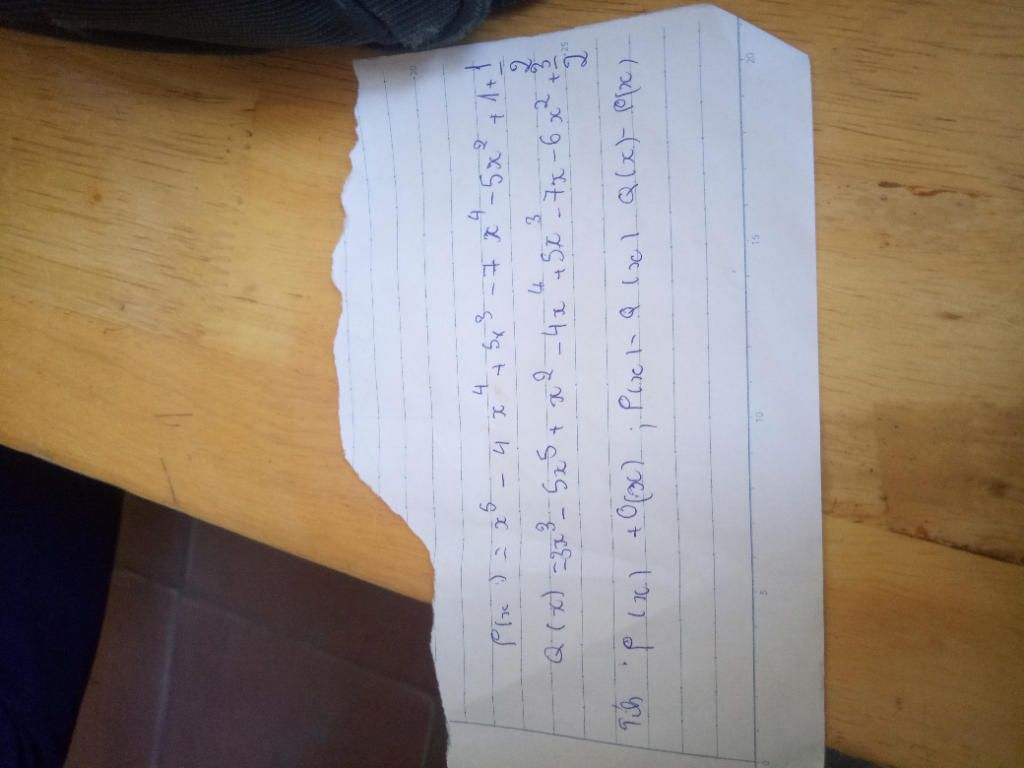 P(x) = x⁵ - 4x⁴ + 5x³ - 7x⁴ - 5x² + 1 + 1/2
Q(x) = 3x³ - 5x⁵ + x² - 4x⁴ + 5x³ - 7x - 6x² + 3/2
P(x) + Q(x) ; P(x) - Q(x) Q(x) - P(x)
5 10 15 20